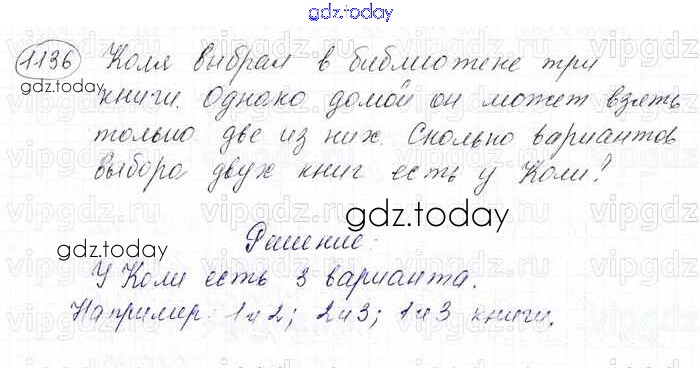 gdz.today
1136 Коля выбрал в библиотеке три
gdz.today
книги. Однако домой он может взять
только две из них. Сколько вариантов
выбора двух книг есть у Коли?
gdz.today
Решение:
gdz.today
У Коли есть 3 варианта.
Например: 1и2; 2и3; 1и3 книги.